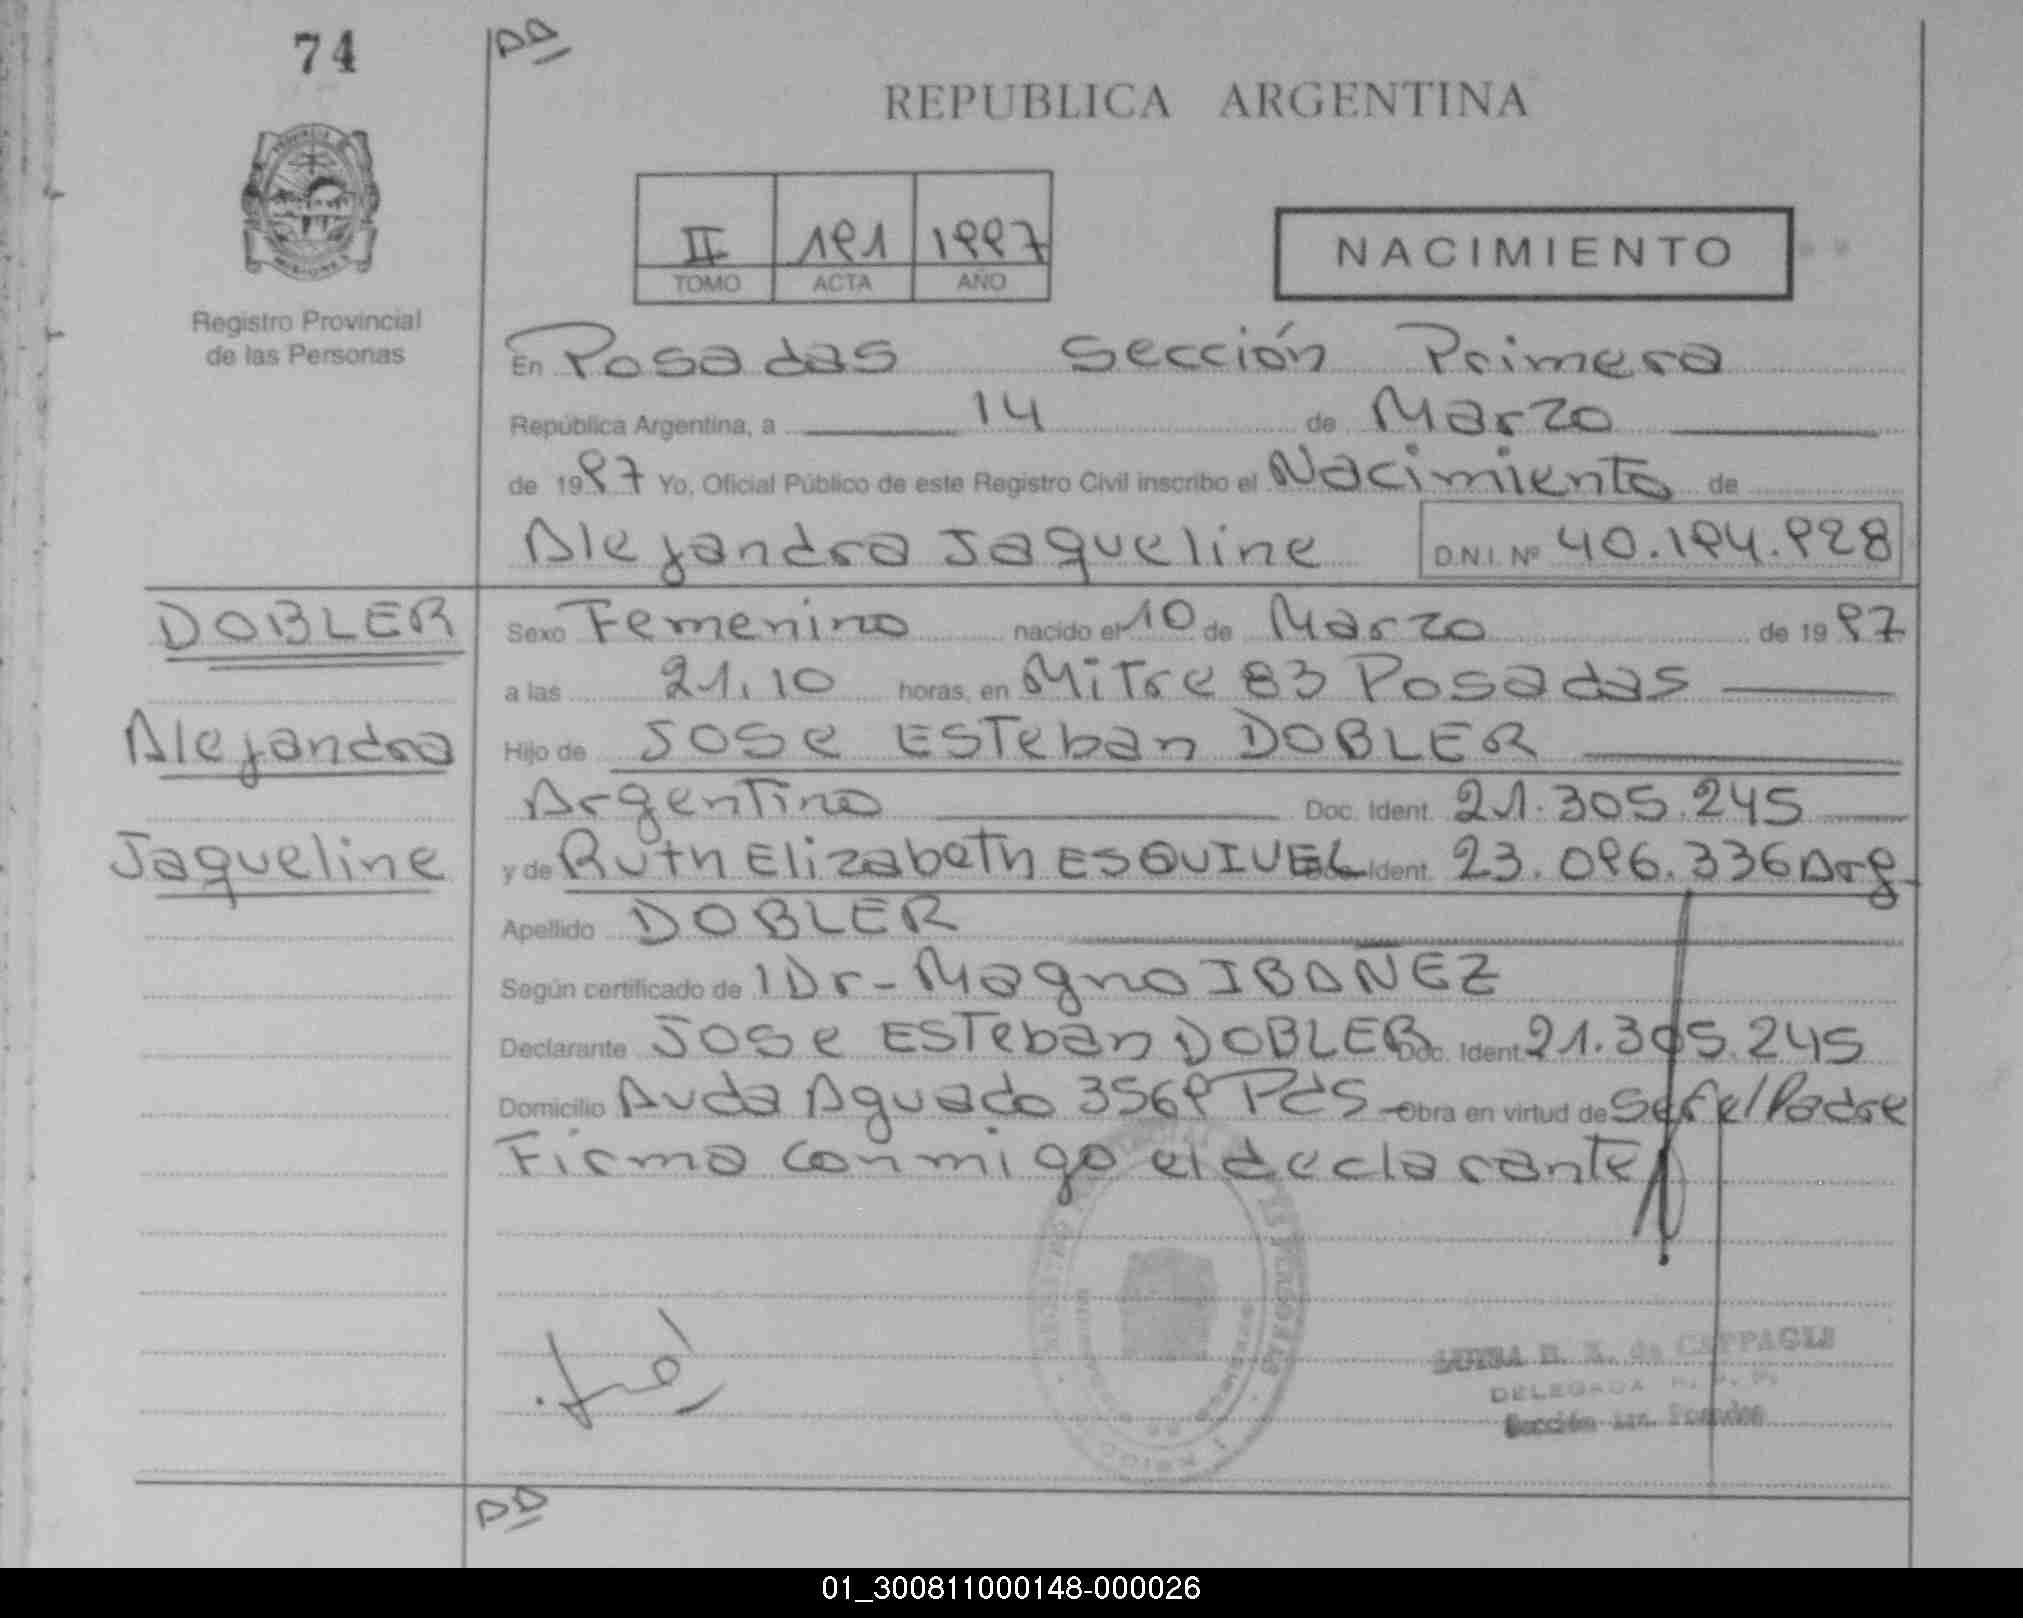 74
DD
REPUBLICA ARGENTINA
II 191 1997
TOMO ACTA AÑO
NACIMIENTO
PROVINCIA
MISIONES
Registro Provincial
de las Personas
En Posadas Sección Primera
República Argentina, a 14 de Marzo
de 1997 Yo, Oficial Público de este Registro Civil inscribo el Nacimiento de
Alejandra Jaqueline D.N.I. Nº 40.194.928
DOBLER
Sexo Femenino nacido el 10 de Marzo de 1997
a las 21.10 horas, en Mitre 83 Posadas
Alejandra
Hijo de Jose Esteban DOBLER
Argentino Doc. Ident. 21.305.245
Jaqueline
y de Ruth Elizabeth ESQUIVEL Doc. Ident. 23.096.336 Arg.
Apellido DOBLER
Según certificado de Dr - Magno IBAÑEZ
Declarante Jose Esteban DOBLER Doc. Ident. 21.305.245
Domicilio Avda Aguado 3569 Pds - Obra en virtud de Ser el Padre
Firma conmigo el declarante
DE CAPPAGLI
DELEGADA R. P. P.
Sección 1ra. Posadas
DD
01_300811000148-000026